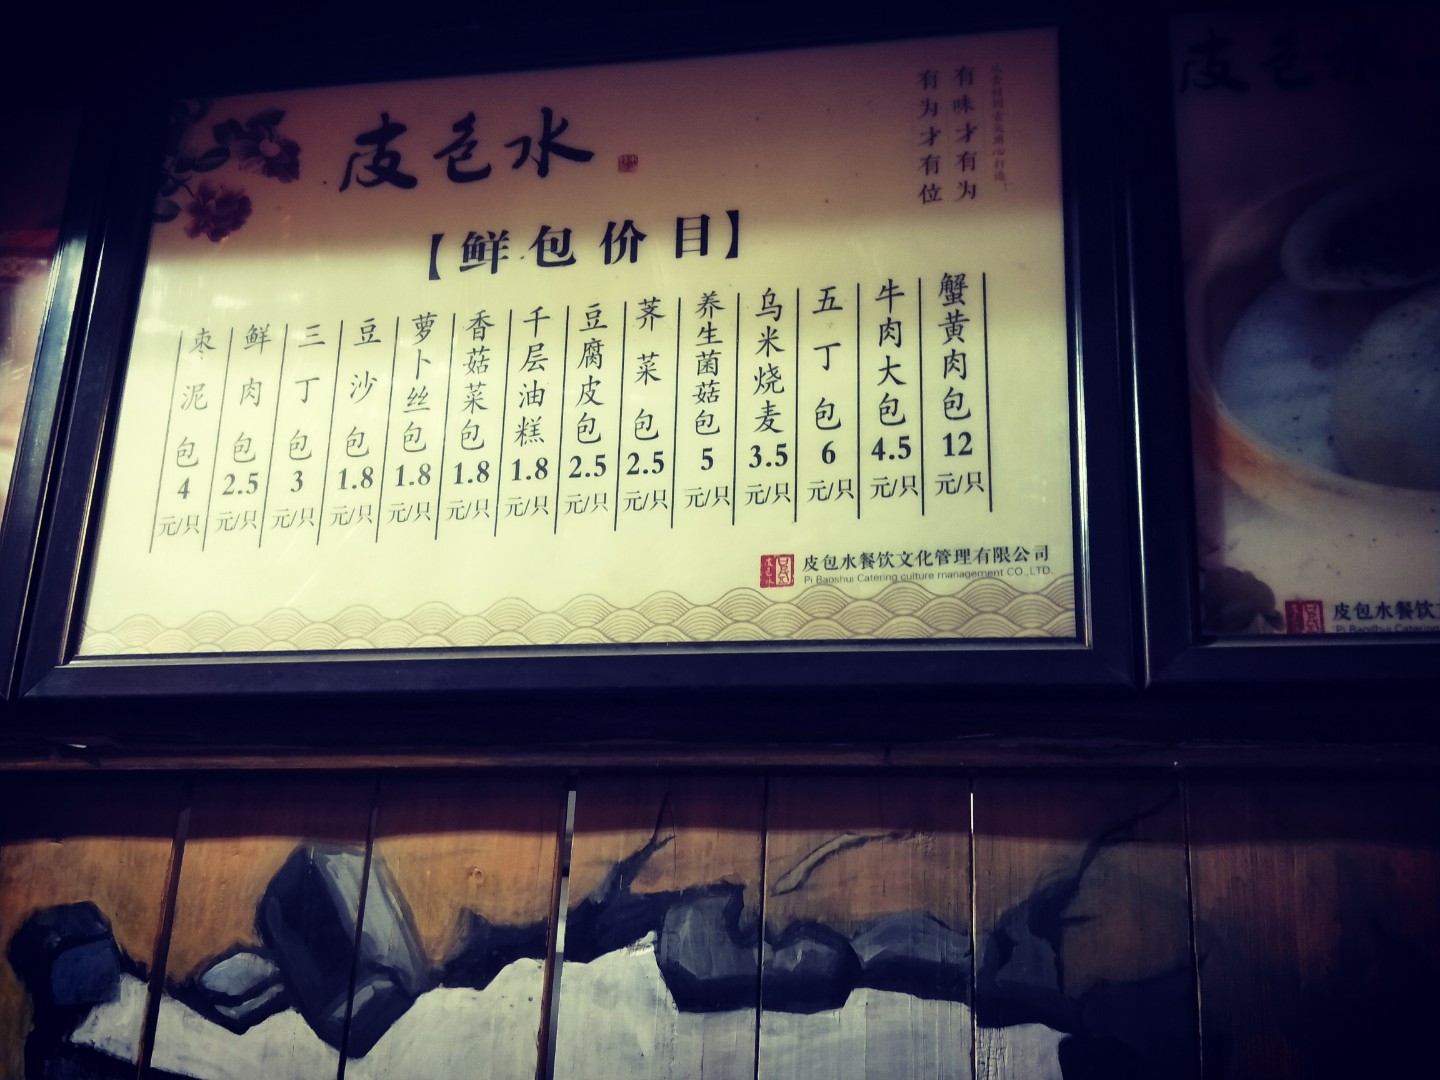 皮包水
有味才有为
有为才有位
【鲜包价目】
蟹黄肉包 12 元/只
牛肉大包 4.5 元/只
五丁包 6 元/只
乌米烧麦 3.5 元/只
养生菌菇包 5 元/只
荠菜包 2.5 元/只
豆腐皮包 2.5 元/只
千层油糕 1.8 元/只
香菇菜包 1.8 元/只
萝卜丝包 1.8 元/只
豆沙包 1.8 元/只
三丁包 3 元/只
鲜肉包 2.5 元/只
枣泥包 4 元/只
皮包水餐饮文化管理有限公司
Pi Baoshui Catering culture management CO.,LTD.
皮包水
皮包水餐饮
Pi Baoshui Catering